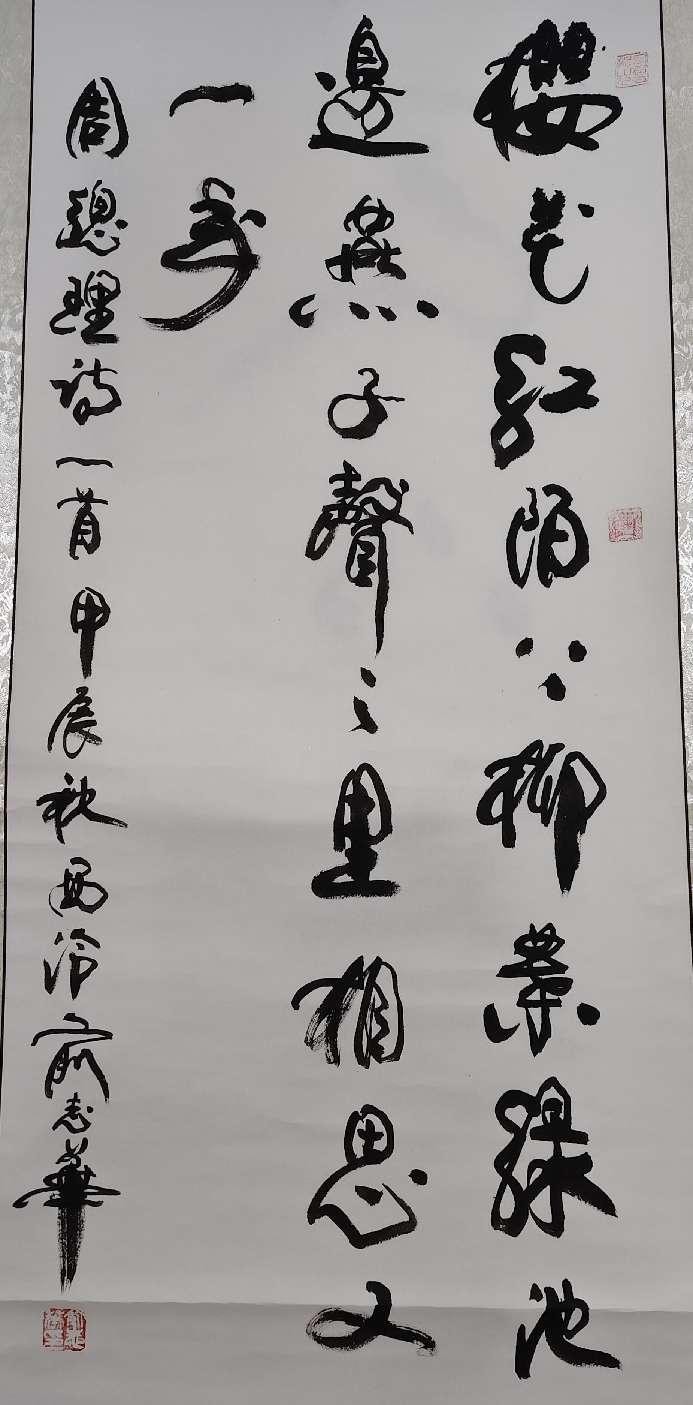 櫻花紅陌上柳葉綠池
邊燕子聲〻里相思又
一年
周總理詩一首甲辰秋西泠俞志華